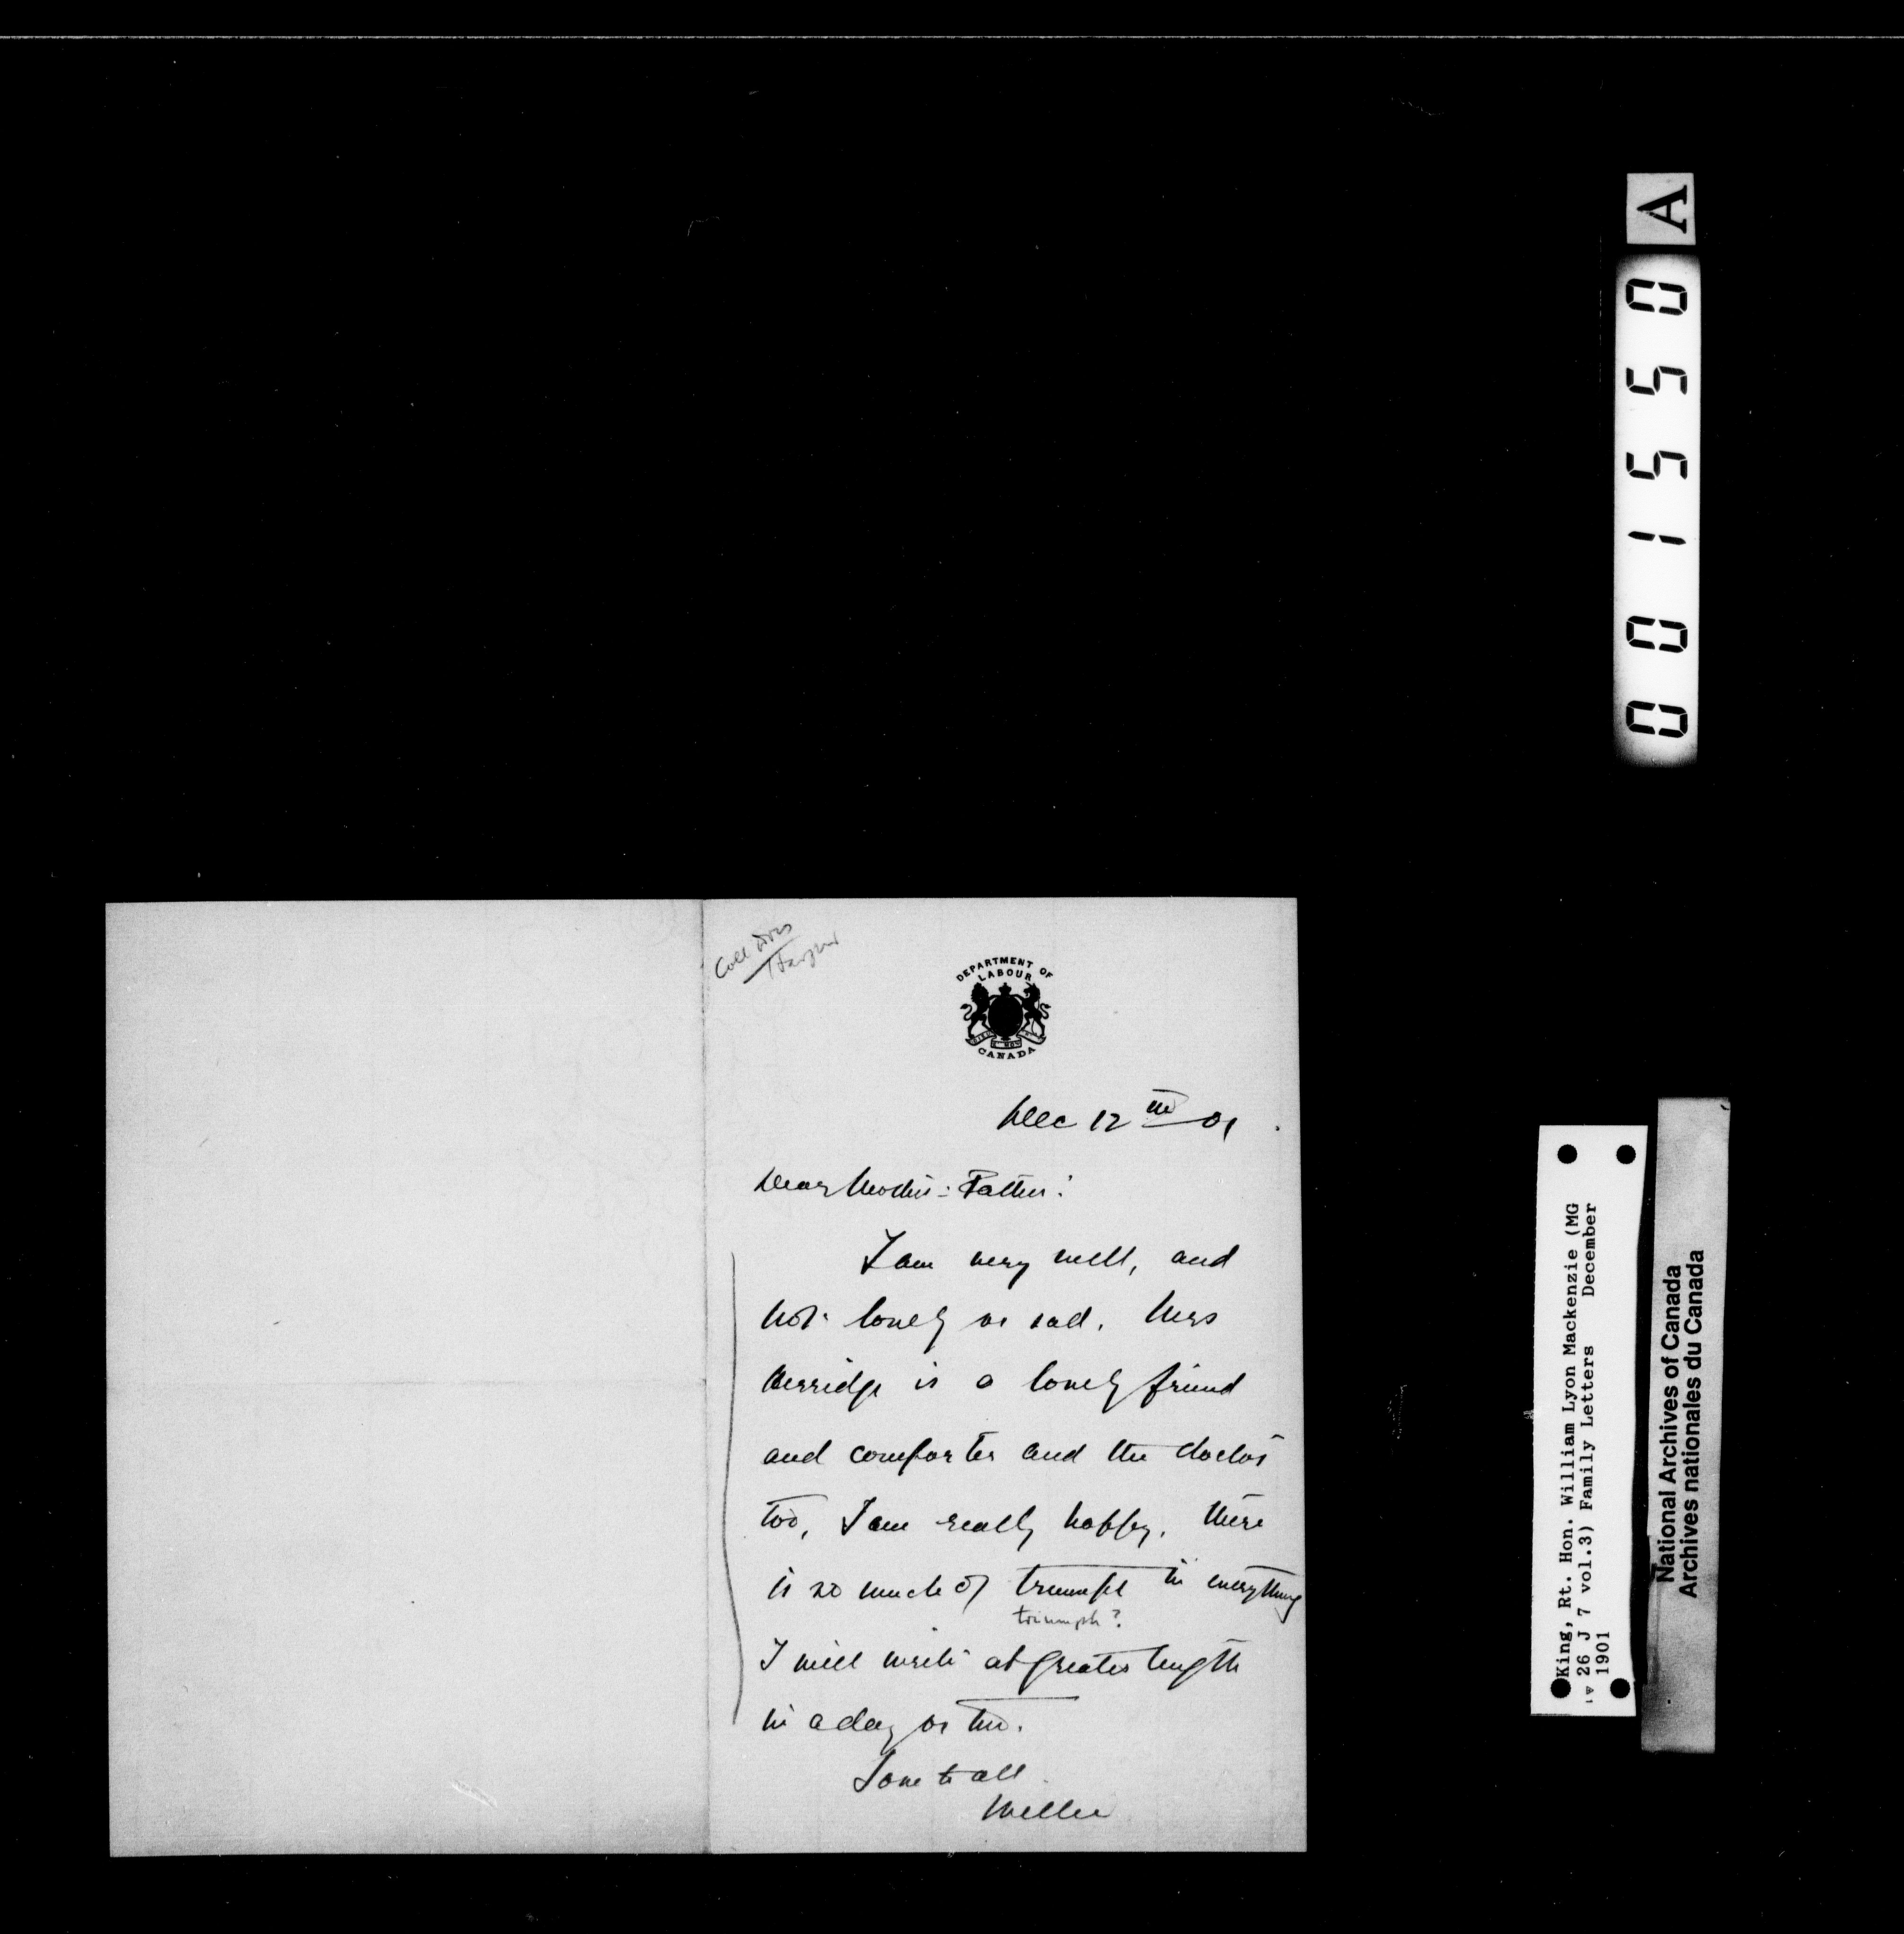 A
001550
DEPARTMENT OF
LABOUR
CANADA
Dec 12th 01
Dear Mother & Father:
I am very well, and
not lonely or sad. Mrs
Herridge is a lovely friend
and comforter and the doctor
too, I am really happy. There
is so much of triumph in everything
triumph?
I will write at greater length
in a day or two.
Love to all
Willie
King, Rt. Hon. William Lyon Mackenzie (MG
26 J 7 vol.3) Family Letters December
1901
National Archives of Canada
Archives nationales du Canada